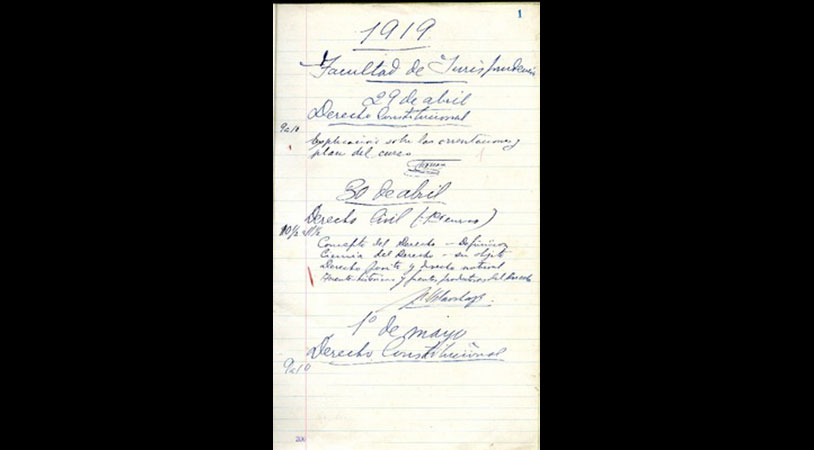 1
1919
Facultad de Jurisprudencia
29 de abril
Derecho Constitucional
9 a 10
Explicación sobre las orientaciones y
plan del curso
30 de abril
Derecho Civil (1er curso)
10½ a 11½
Concepto del Derecho - Definición
Ciencia del Derecho - su objeto
Derecho y derecho natural
y fuentes del Derecho
1º de mayo
Derecho Constitucional
9 a 10